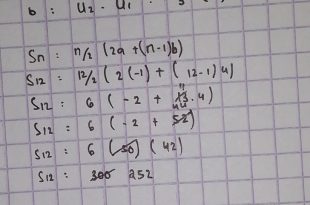 b : U2 - U1 : 3
Sn : n/2 (2a + (n-1)b)
S12 : 12/2 (2(-1) + (12-1)4)
S12 : 6 (-2 + 11.4)
S12 : 6 (-2 + 44)
S12 : 6 (42)
S12 : 252